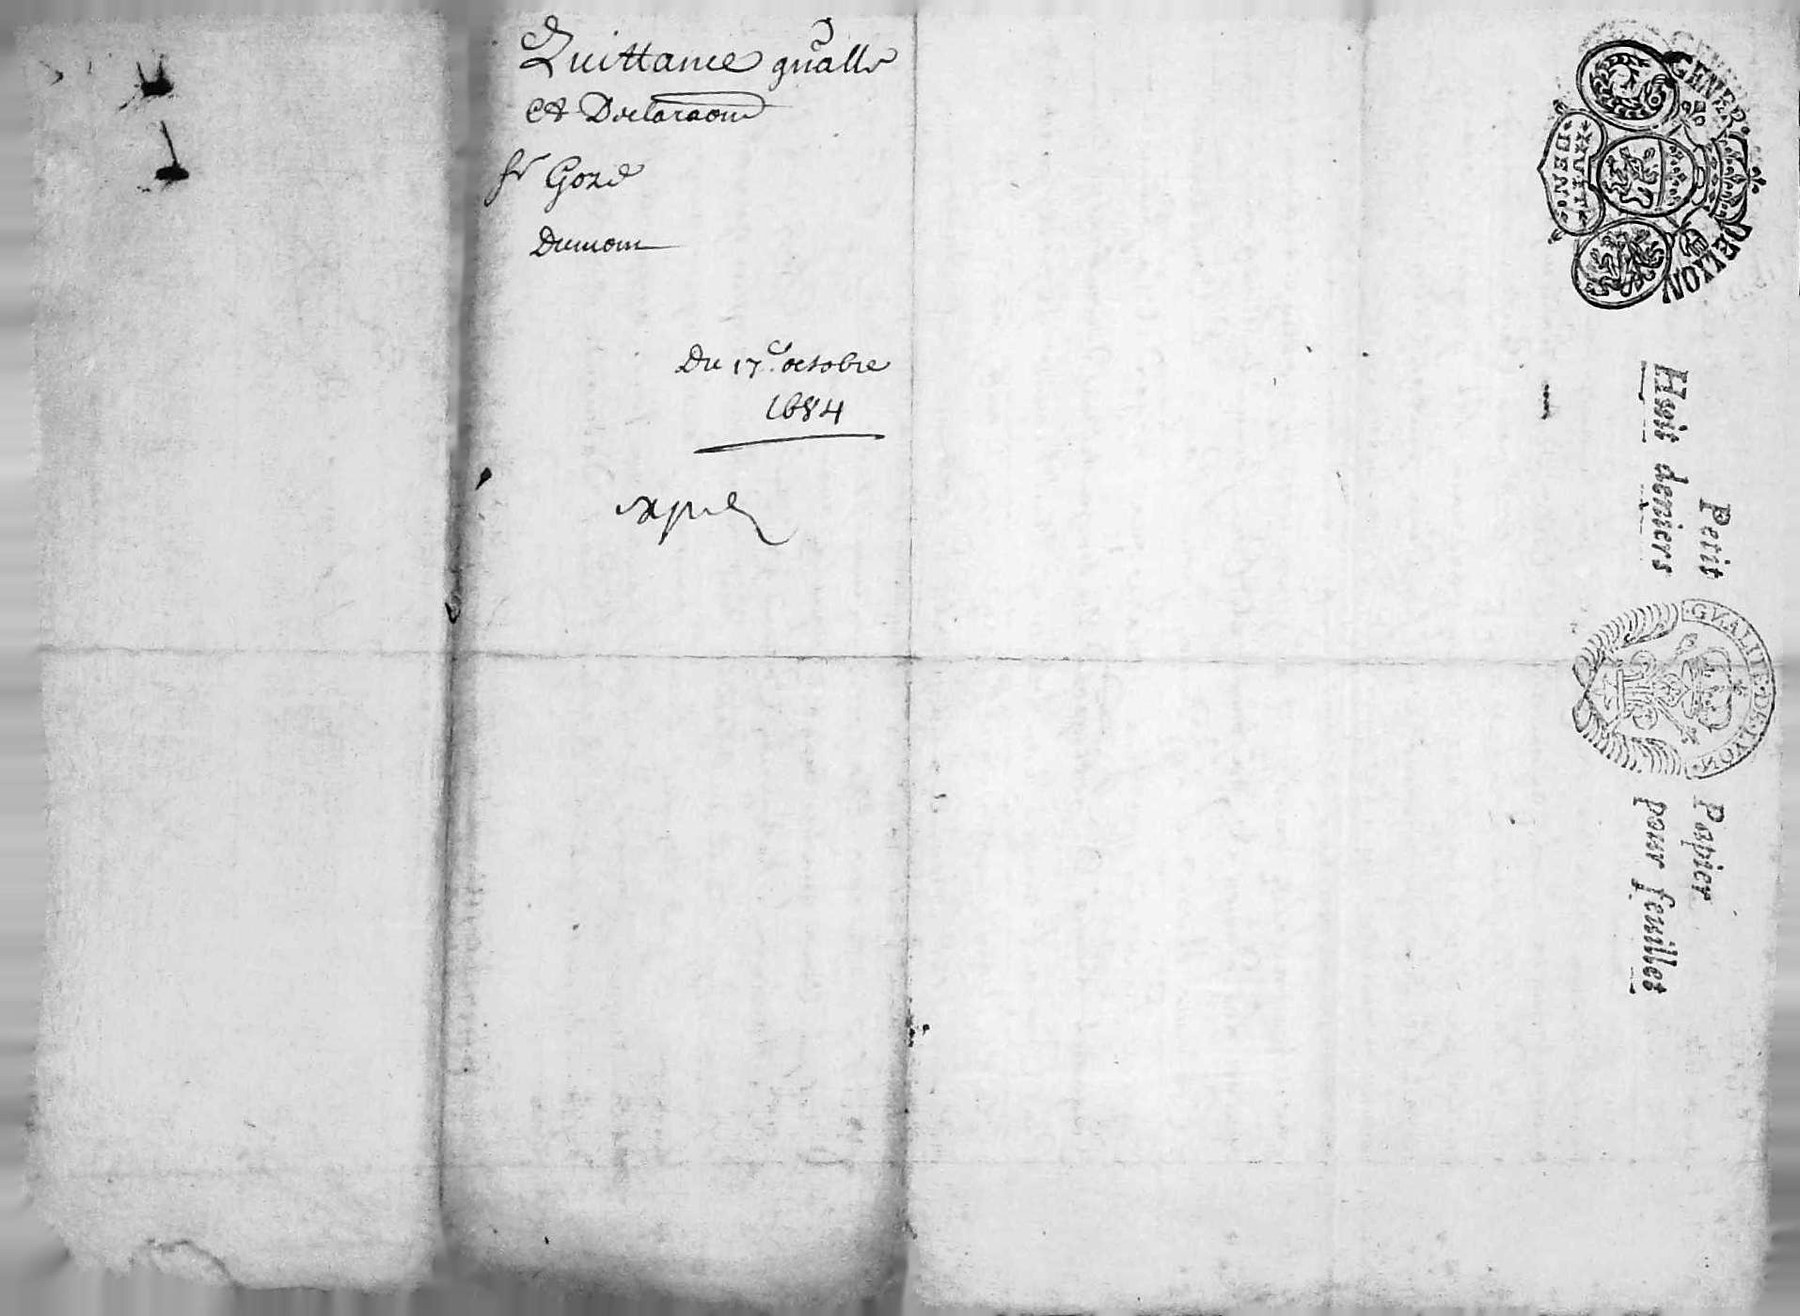 Quittance gnalle
et Declaraon
sr Goze
Dumom
Du 17e octobre
1684
expé
GENER. DE LYON
HVIT DEN.
Petit Papier
Huit deniers pour feuillet
GNALITE DE LYON